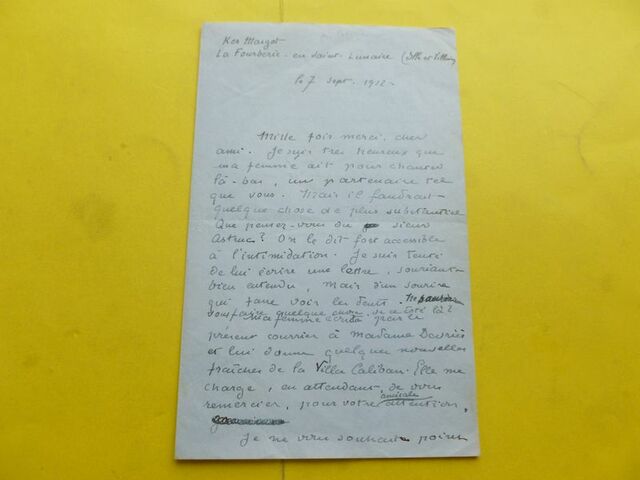 Ker Margot
La Fourberie - en Saint-Lunaire (Ille et Vilaine)
le 7 Sept. 1912
Mille fois merci, cher
ami. Je suis très heureux que
ma femme ait pour chanter
là-bas, un partenaire tel
que vous. Mais il faudrait
quelque chose de plus substantiel
Que pensez-vous du sieur
Astruc? On le dit fort accessible
à l'intimidation. Je suis tenté
de lui écrire une lettre, souriante
bien entendu, mais d'un sourire
qui fasse voir les dents. Ne pourriez
vous faire quelque chose, de ce côté là?
Ma femme écrit par le
présent courrier à Madame Devriès
et lui donne quelques nouvelles
fraîches de la Villa Caliban. Elle me
charge, en attendant, de vous
remercier, pour votre amicale attention,
Je ne vous souhaite point